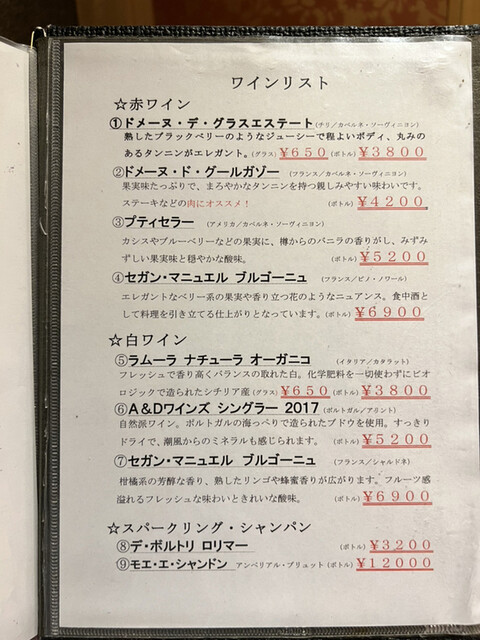 ワインリスト
☆赤ワイン
①ドメーヌ・デ・グラスエステート(チリ/カベルネ・ソーヴィニヨン)
熟したブラックベリーのようなジューシーで程よいボディ、丸みの
あるタンニンがエレガント。(グラス)¥650 (ボトル)¥3800
②ドメーヌ・ド・グールガゾー (フランス/カベルネ・ソーヴィニヨン)
果実味たっぷりで、まろやかなタンニンを持つ親しみやすい味わいです。
ステーキなどの肉にオススメ! (ボトル)¥4200
③プティセラー (アメリカ/カベルネ・ソーヴィニヨン)
カシスやブルーベリーなどの果実に、樽からのバニラの香りがし、みずみ
ずしい果実味と穏やかな酸味。 (ボトル)¥5200
④セガン・マニュエル ブルゴーニュ (フランス/ピノ・ノワール)
エレガントなベリー系の果実や香り立つ花のようなニュアンス。食中酒と
して料理を引き立てる仕上がりとなっています。(ボトル)¥6900
☆白ワイン
⑤ラムーラ ナチューラ オーガニコ (イタリア/カタラット)
フレッシュで香り高くバランスの取れた白。化学肥料を一切使わずにビオ
ロジックで造られたシチリア産(グラス)¥650 (ボトル)¥3800
⑥A&Dワインズ シングラー 2017(ポルトガル/アリント)
自然派ワイン。ポルトガルの海っぺりで造られたブドウを使用。すっきり
ドライで、潮風からのミネラルも感じられます。 (ボトル)¥5200
⑦セガン・マニュエル ブルゴーニュ (フランス/シャルドネ)
柑橘系の芳醇な香り、熟したリンゴや蜂蜜香りが広がります。フルーツ感
溢れるフレッシュな味わいときれいな酸味。 (ボトル)¥6900
☆スパークリング・シャンパン
⑧デ・ボルトリ ロリマー (ボトル)¥3200
⑨モエ・エ・シャンドン アンペリアル・ブリュット(ボトル)¥12000